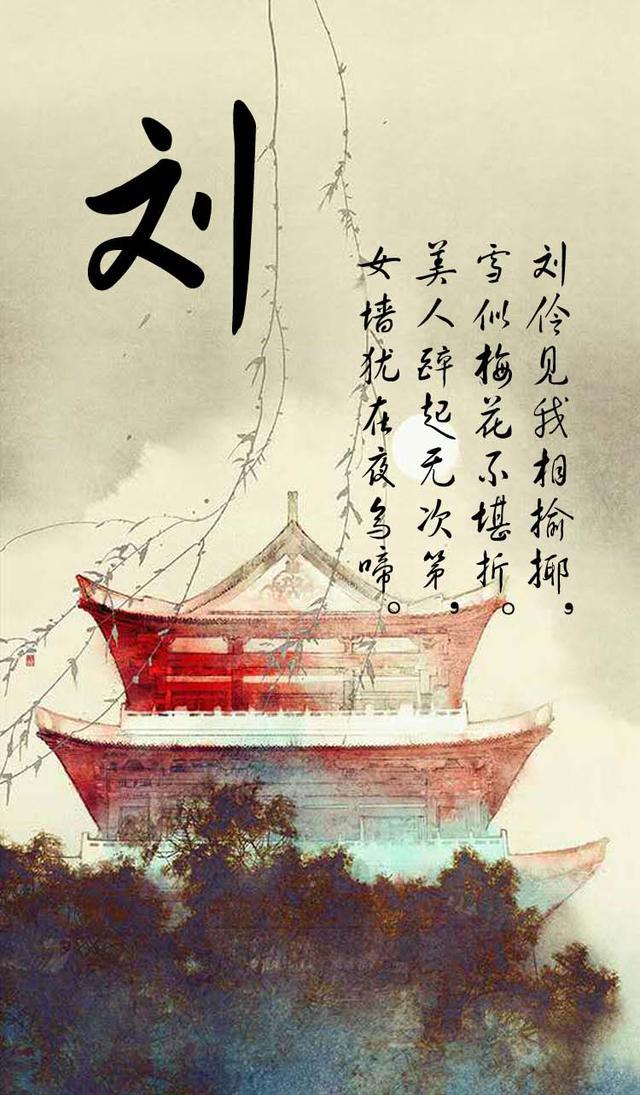 刘
刘伶见我相揄揶，
雪似梅花不堪折。
美人醉起无次第，
女墙犹在夜乌啼。